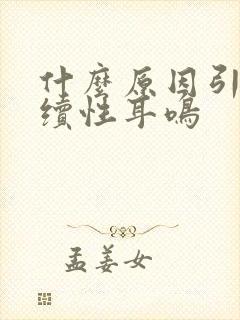 什麼原因引
續性耳鳴
孟姜女